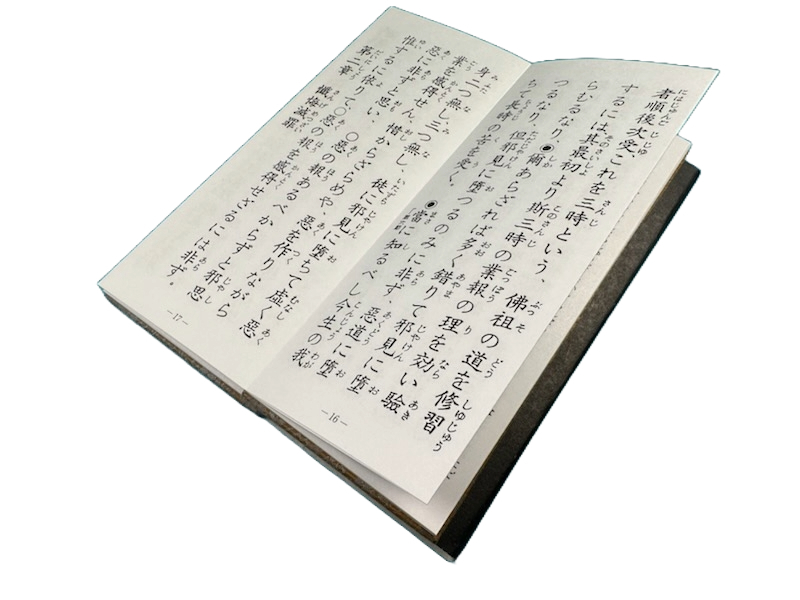 者順後次受これを三時という、佛祖の道を修習
するには其最初より斯三時の業報の理を効い験
らむるなり◉爾あらざれば多く錯りて邪見に墮
つるなり、但邪見に墮つるのみに非ず、惡道に墮
ちて長時の苦を受く。◉當に知るべし今生の我
―16―
身二つ無し、三つ無し、徒に邪見に墮ちて虚く惡
業を感得せん、惜からざらめや、惡を作りながら
惡に非ずと思い、○惡の報あるべからずと邪思
惟するに依りて○惡の報を感得せざるには非ず。
第二章　懺悔滅罪
―17―